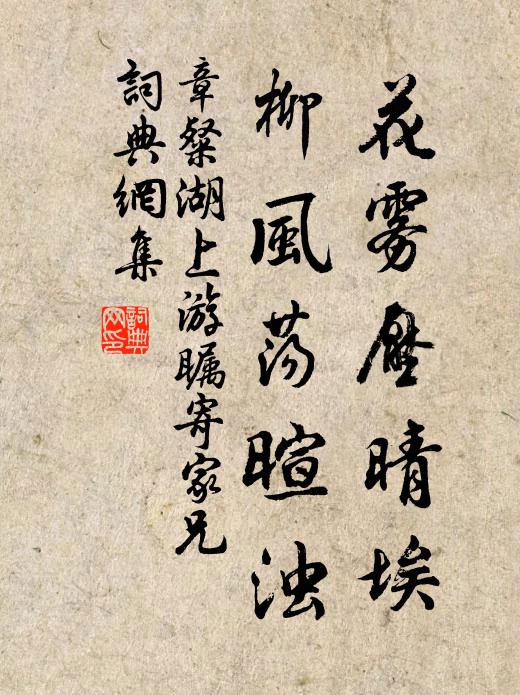 花雾壓晴埃
柳風荡暄浊
章粲湖上游瞩寄家兄
詞典網集
詞典網印